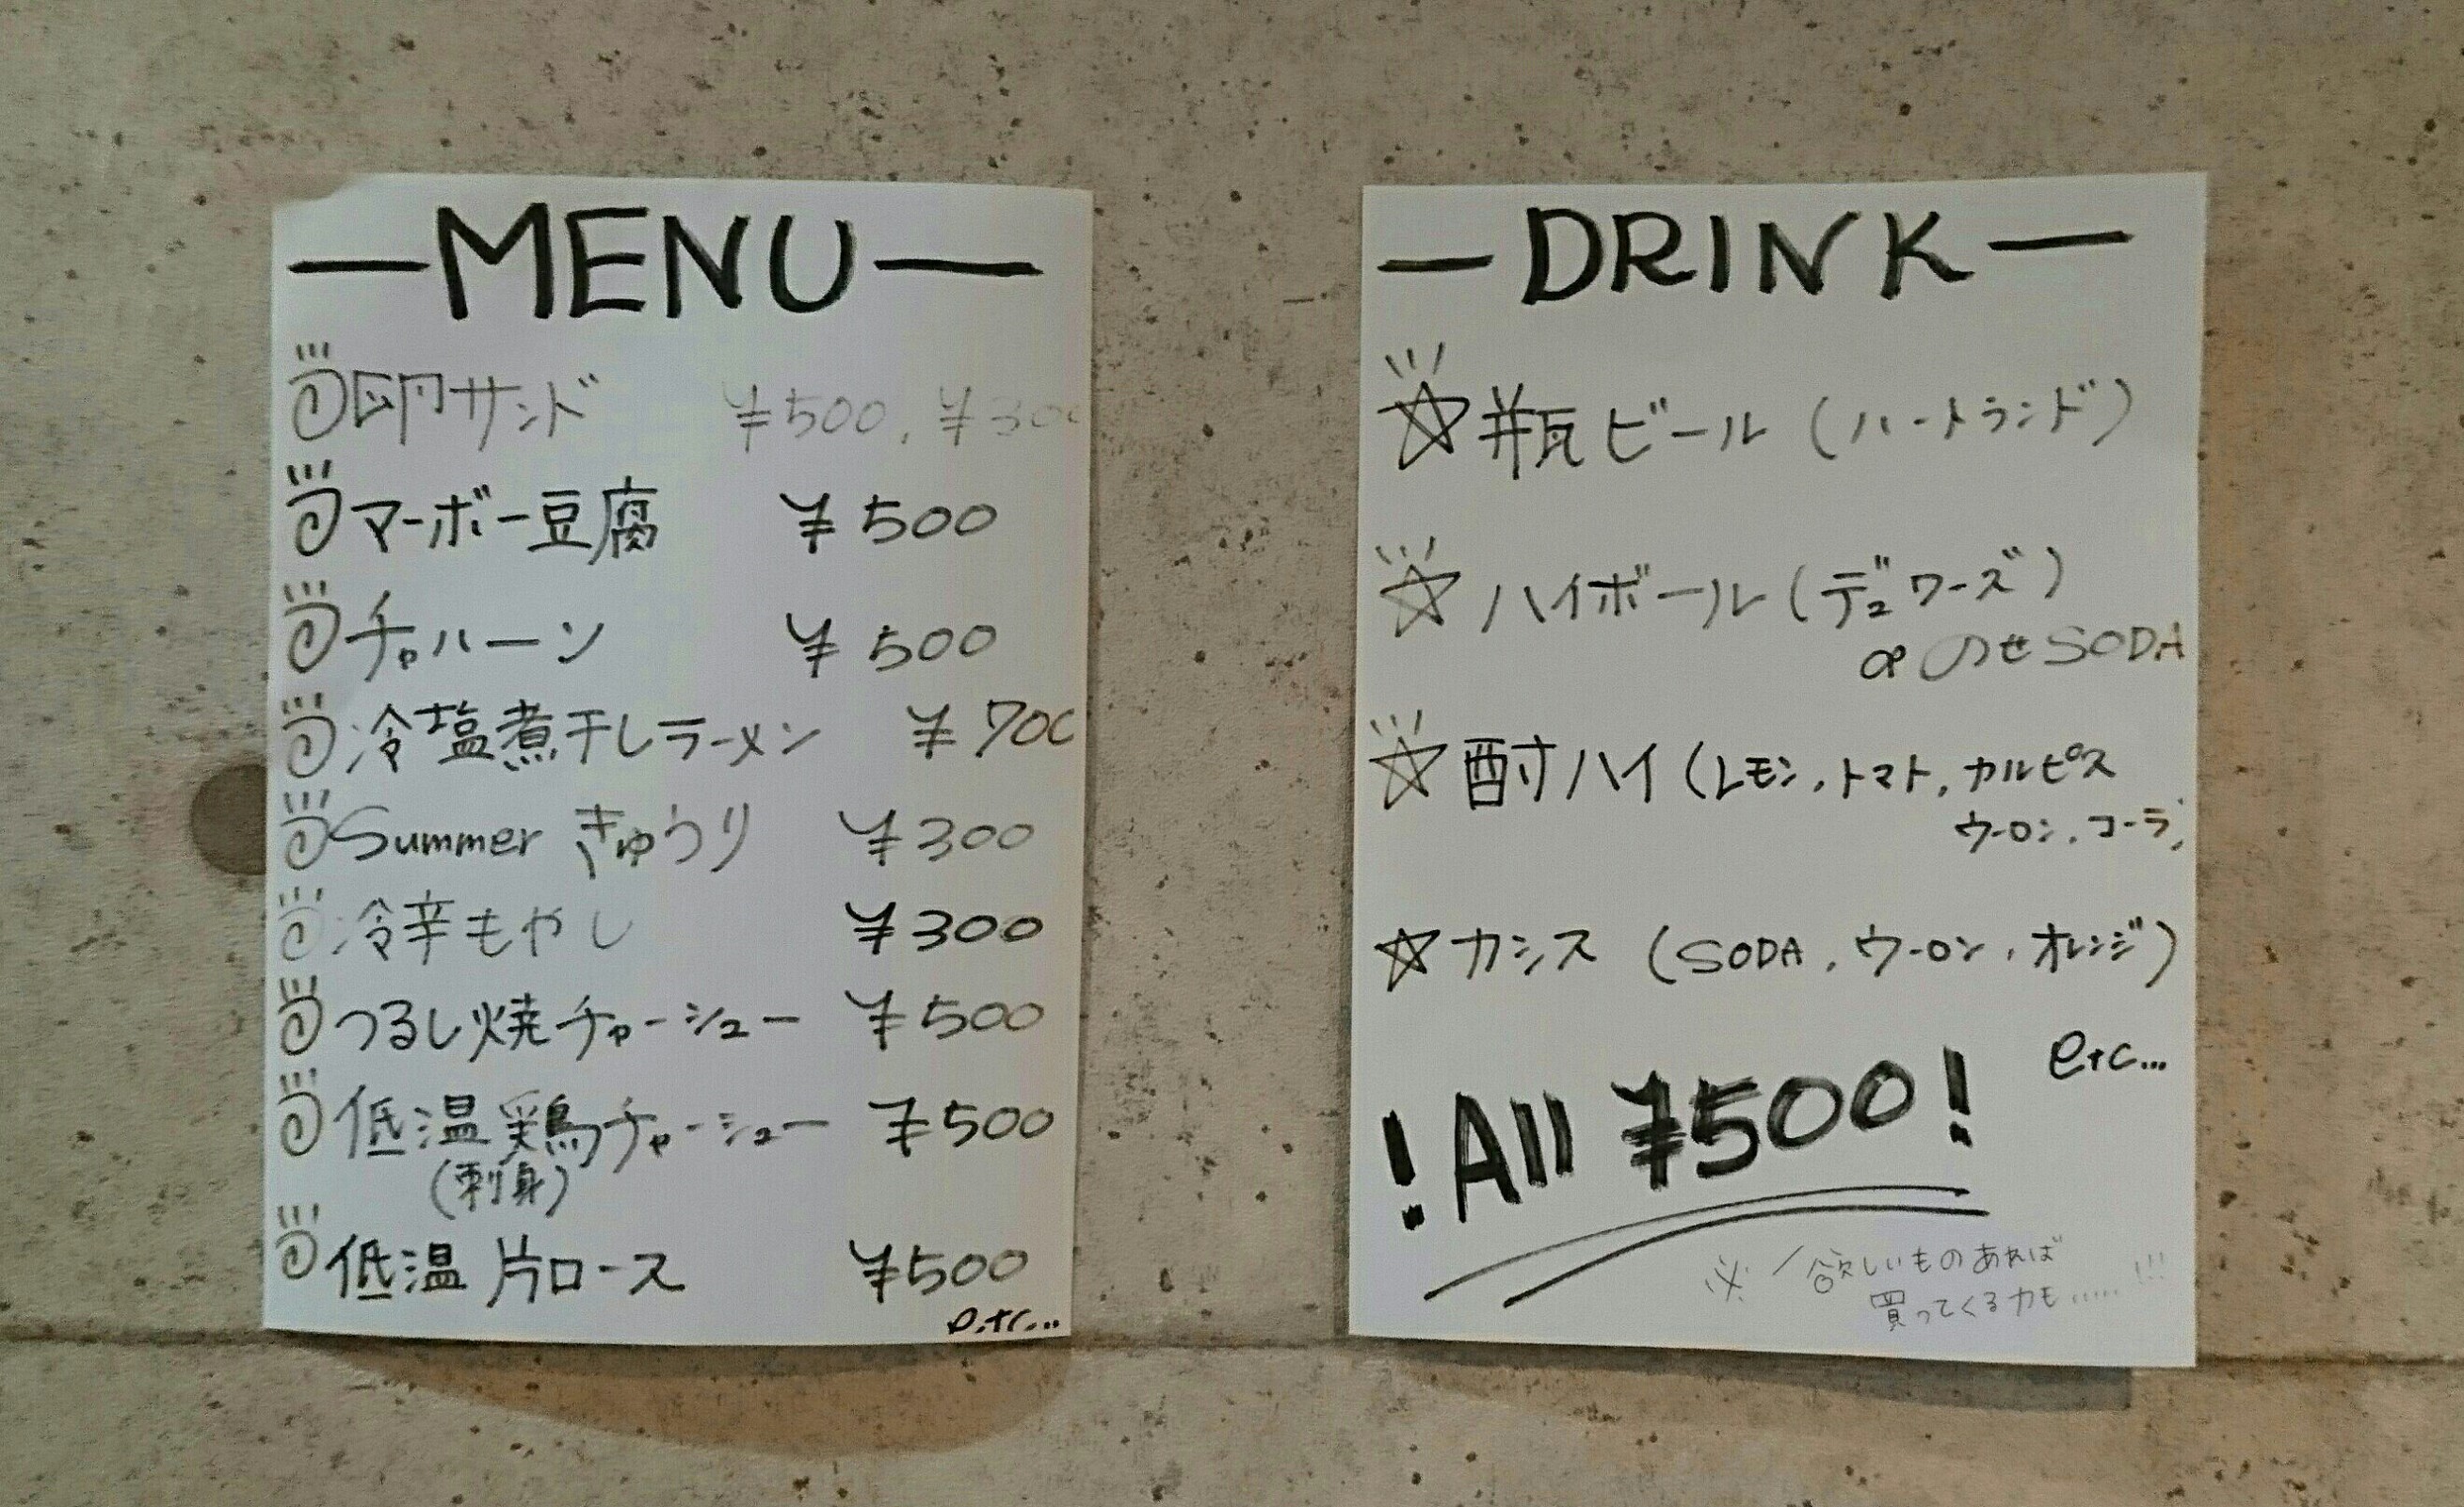 —MENU—
卵サンド ¥500, ¥300
マーボー豆腐 ¥500
チャハーン ¥500
冷塩煮干しラーメン ¥700
Summer きゅうり ¥300
冷辛もやし ¥300
つるし焼チャーシュー ¥500
低温鶏チャーシュー ¥500
(刺身)
低温 片ロース ¥500
etc...
—DRINK—
☆瓶ビール (ハートランド)
☆ハイボール (デュワーズ)
のせSODA
☆酎ハイ (レモン, トマト, カルピス
ウーロン, コーラ)
☆カシス (SODA, ウーロン, オレンジ)
etc...
!All ¥500!
※ 欲しいものあれば
買ってくるカモ.....!!!